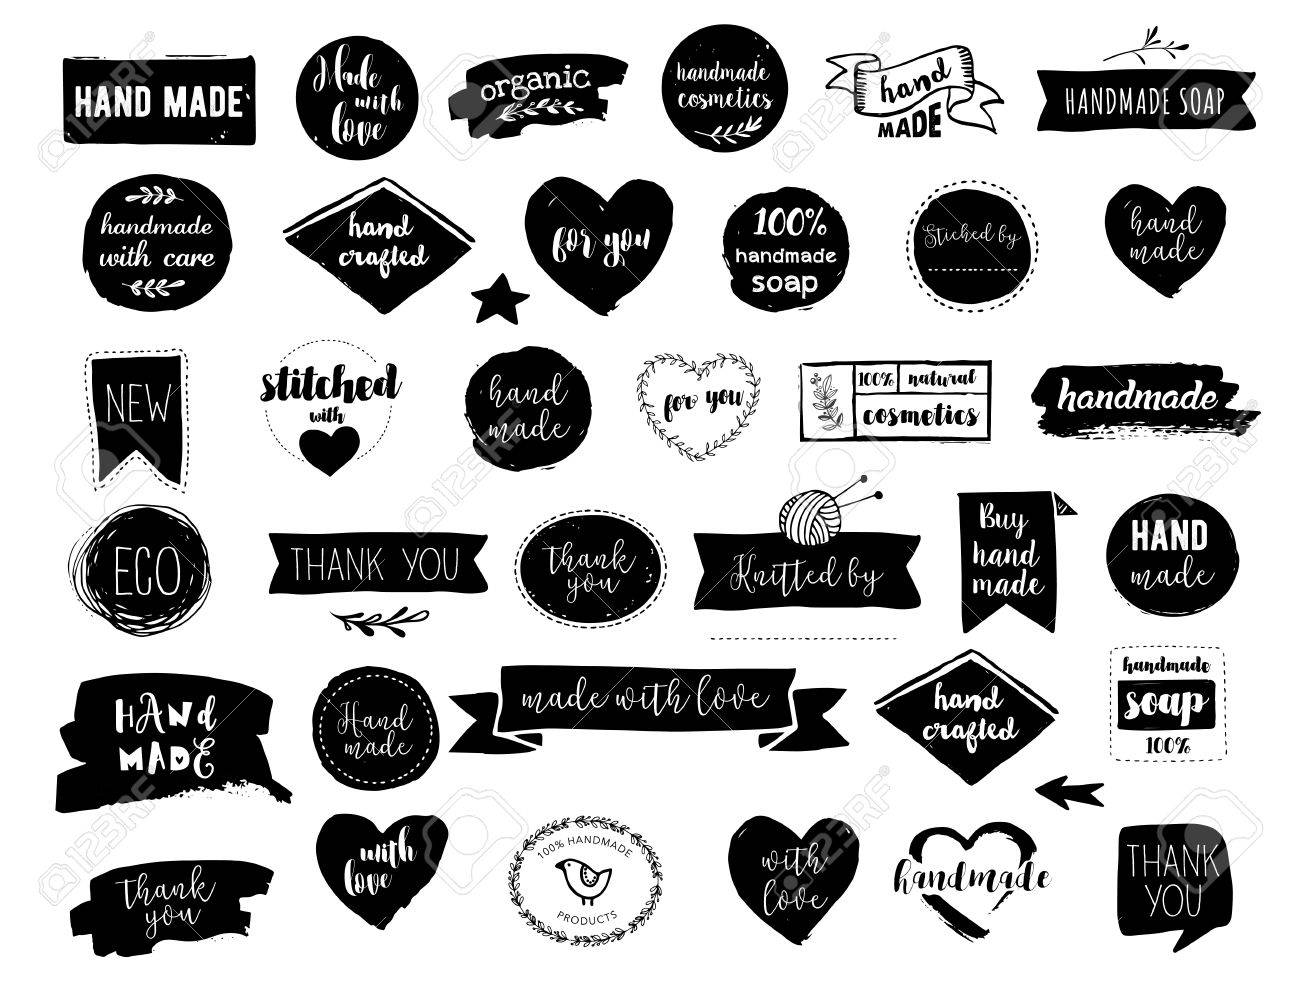 HAND MADE
Made
with
love
organic
handmade
cosmetics
hand
MADE
HANDMADE SOAP
handmade
with care
hand
crafted
for you
100%
handmade
soap
Stiched by
hand
made
NEW
stitched
with
hand
made
for you
100% natural
cosmetics
handmade
ECO
THANK YOU
Thank
you
Knitted by
Buy
hand
made
HAND
made
HANd
MADE
Hand
made
made with love
hand
crafted
handmade
soap
100%
Thank
you
with
love
100% HANDMADE
PRODUCTS
with
love
handmade
THANK
YOU
123RF